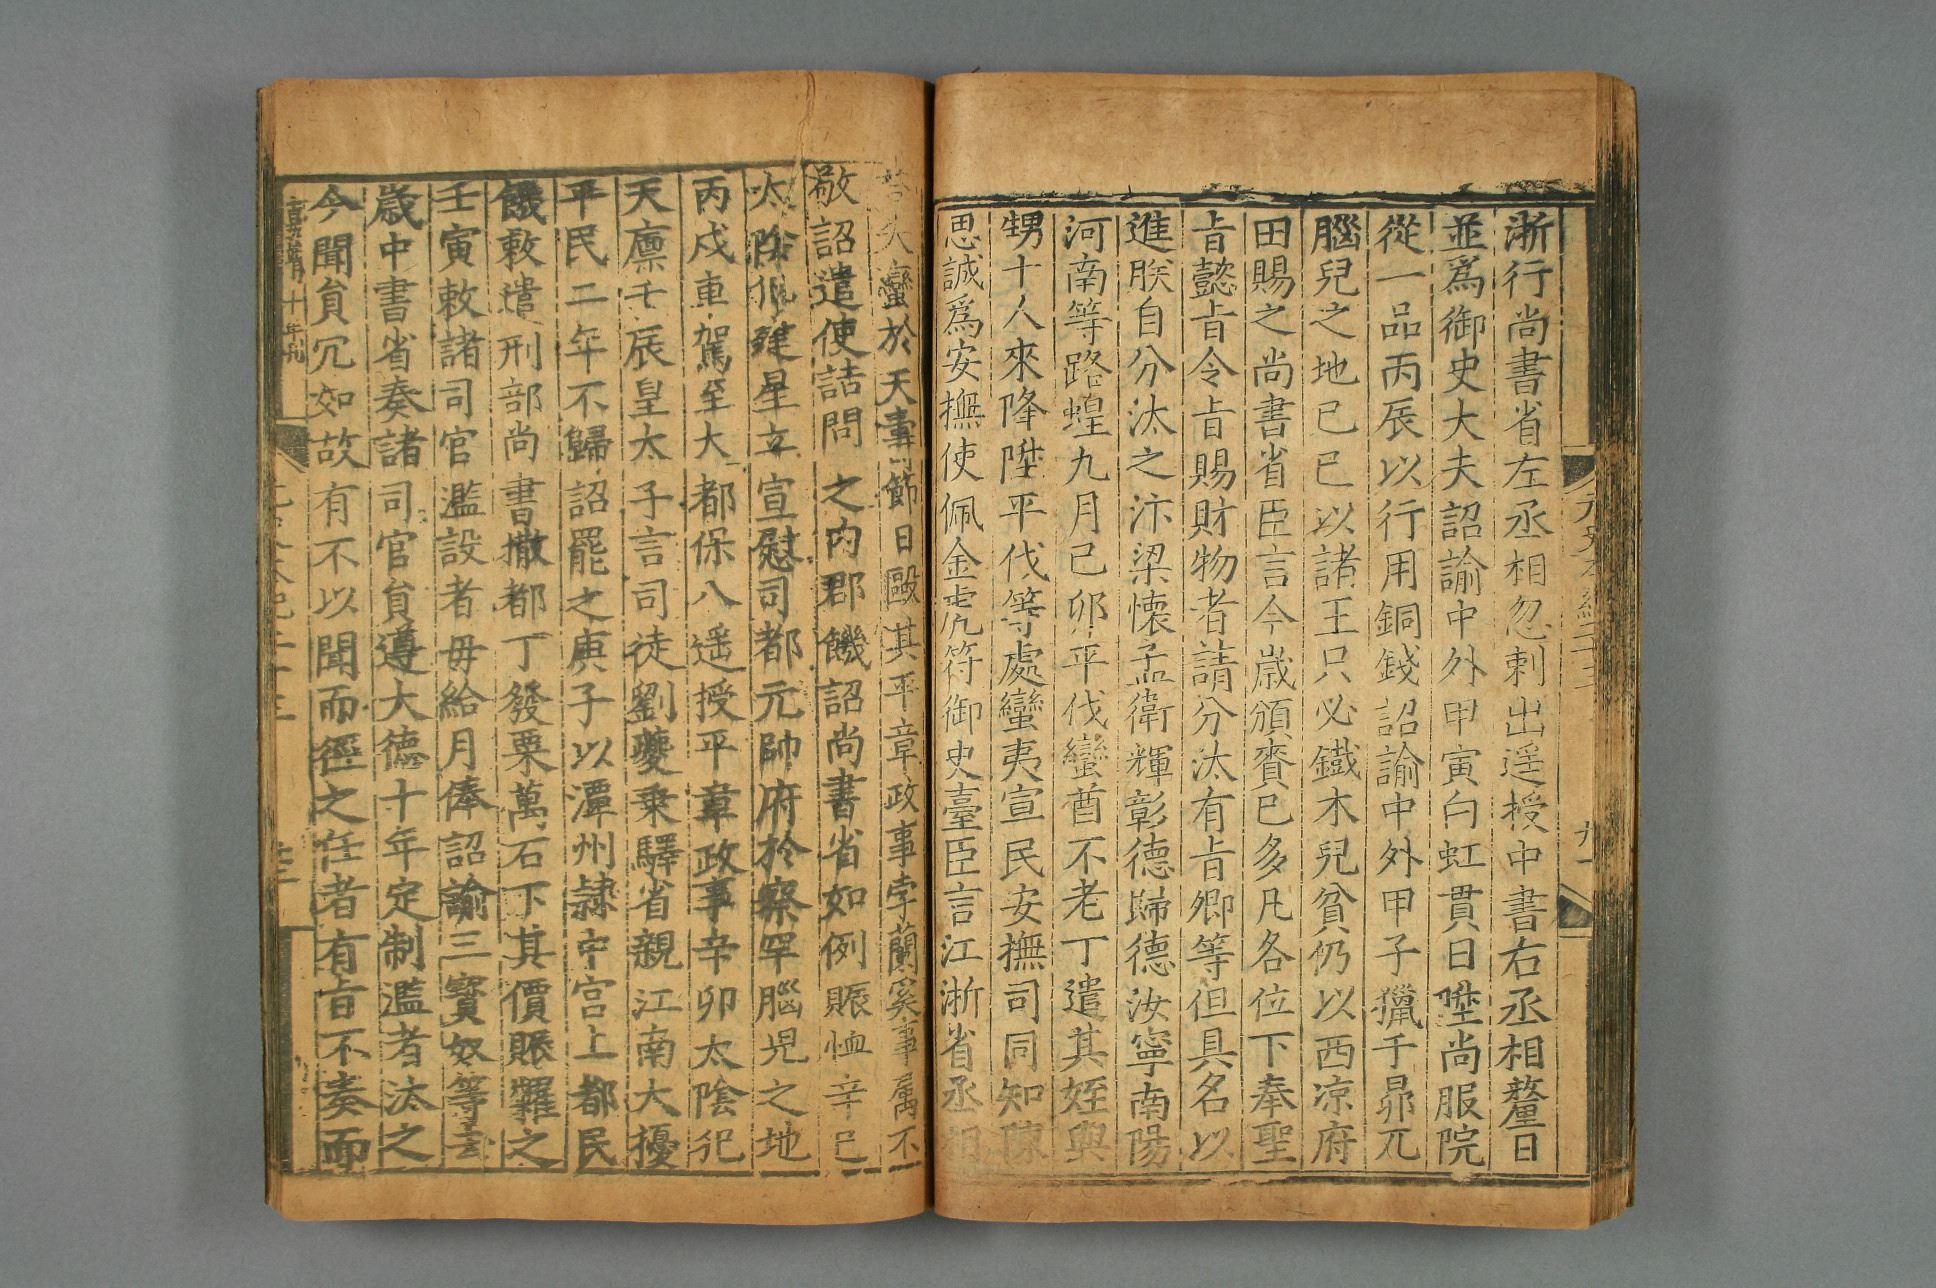 元史本紀二十三
九
浙行尚書省左丞相忽剌出遥授中書右丞相釐日
並爲御史大夫詔諭中外甲寅白虹貫日陞尚服院
從一品丙辰以行用銅錢詔諭中外甲子獵于昴兀
腦兒之地己巳以諸王只必鐵木兒貧仍以西凉府
田賜之尚書省臣言今歳頒賚已多凡各位下奉聖
㫖懿㫖令㫖賜財物者請分汰有㫖卿等但具名以
進朕自分汰之汴梁懷孟衛輝彰德歸德汝寧南陽
河南等路蝗九月己卯平伐蠻酋不老丁遣其姪與
甥十人來降陞平伐等處蠻夷宣民安撫司同知陳
思誠爲安撫使佩金虎符御史臺臣言江浙省丞相
答失蠻於天壽節日毆其平章政事孛蘭奚事屬不
敬詔遣使詰問之内郡饑詔尚書省如例賑恤辛巳
太陰犯建星立宣慰司都元帥府於察罕腦兒之地
丙戌車駕至大都保八遥授平章政事辛卯太陰犯
天廪壬辰皇太子言司徒劉夔乗驛省親江南大擾
平民二年不歸詔罷之庚子以潭州隷中宫上都民
饑敕遣刑部尚書撒都丁發粟萬石下其價賑糶之
壬寅敕諸司官濫設者毋給月俸詔諭三寳奴等去
歳中書省奏諸司官員遵大德十年定制濫者汰之
今聞員冗如故有不以聞而徑之任者有㫖不奏而
嘉靖十年刊